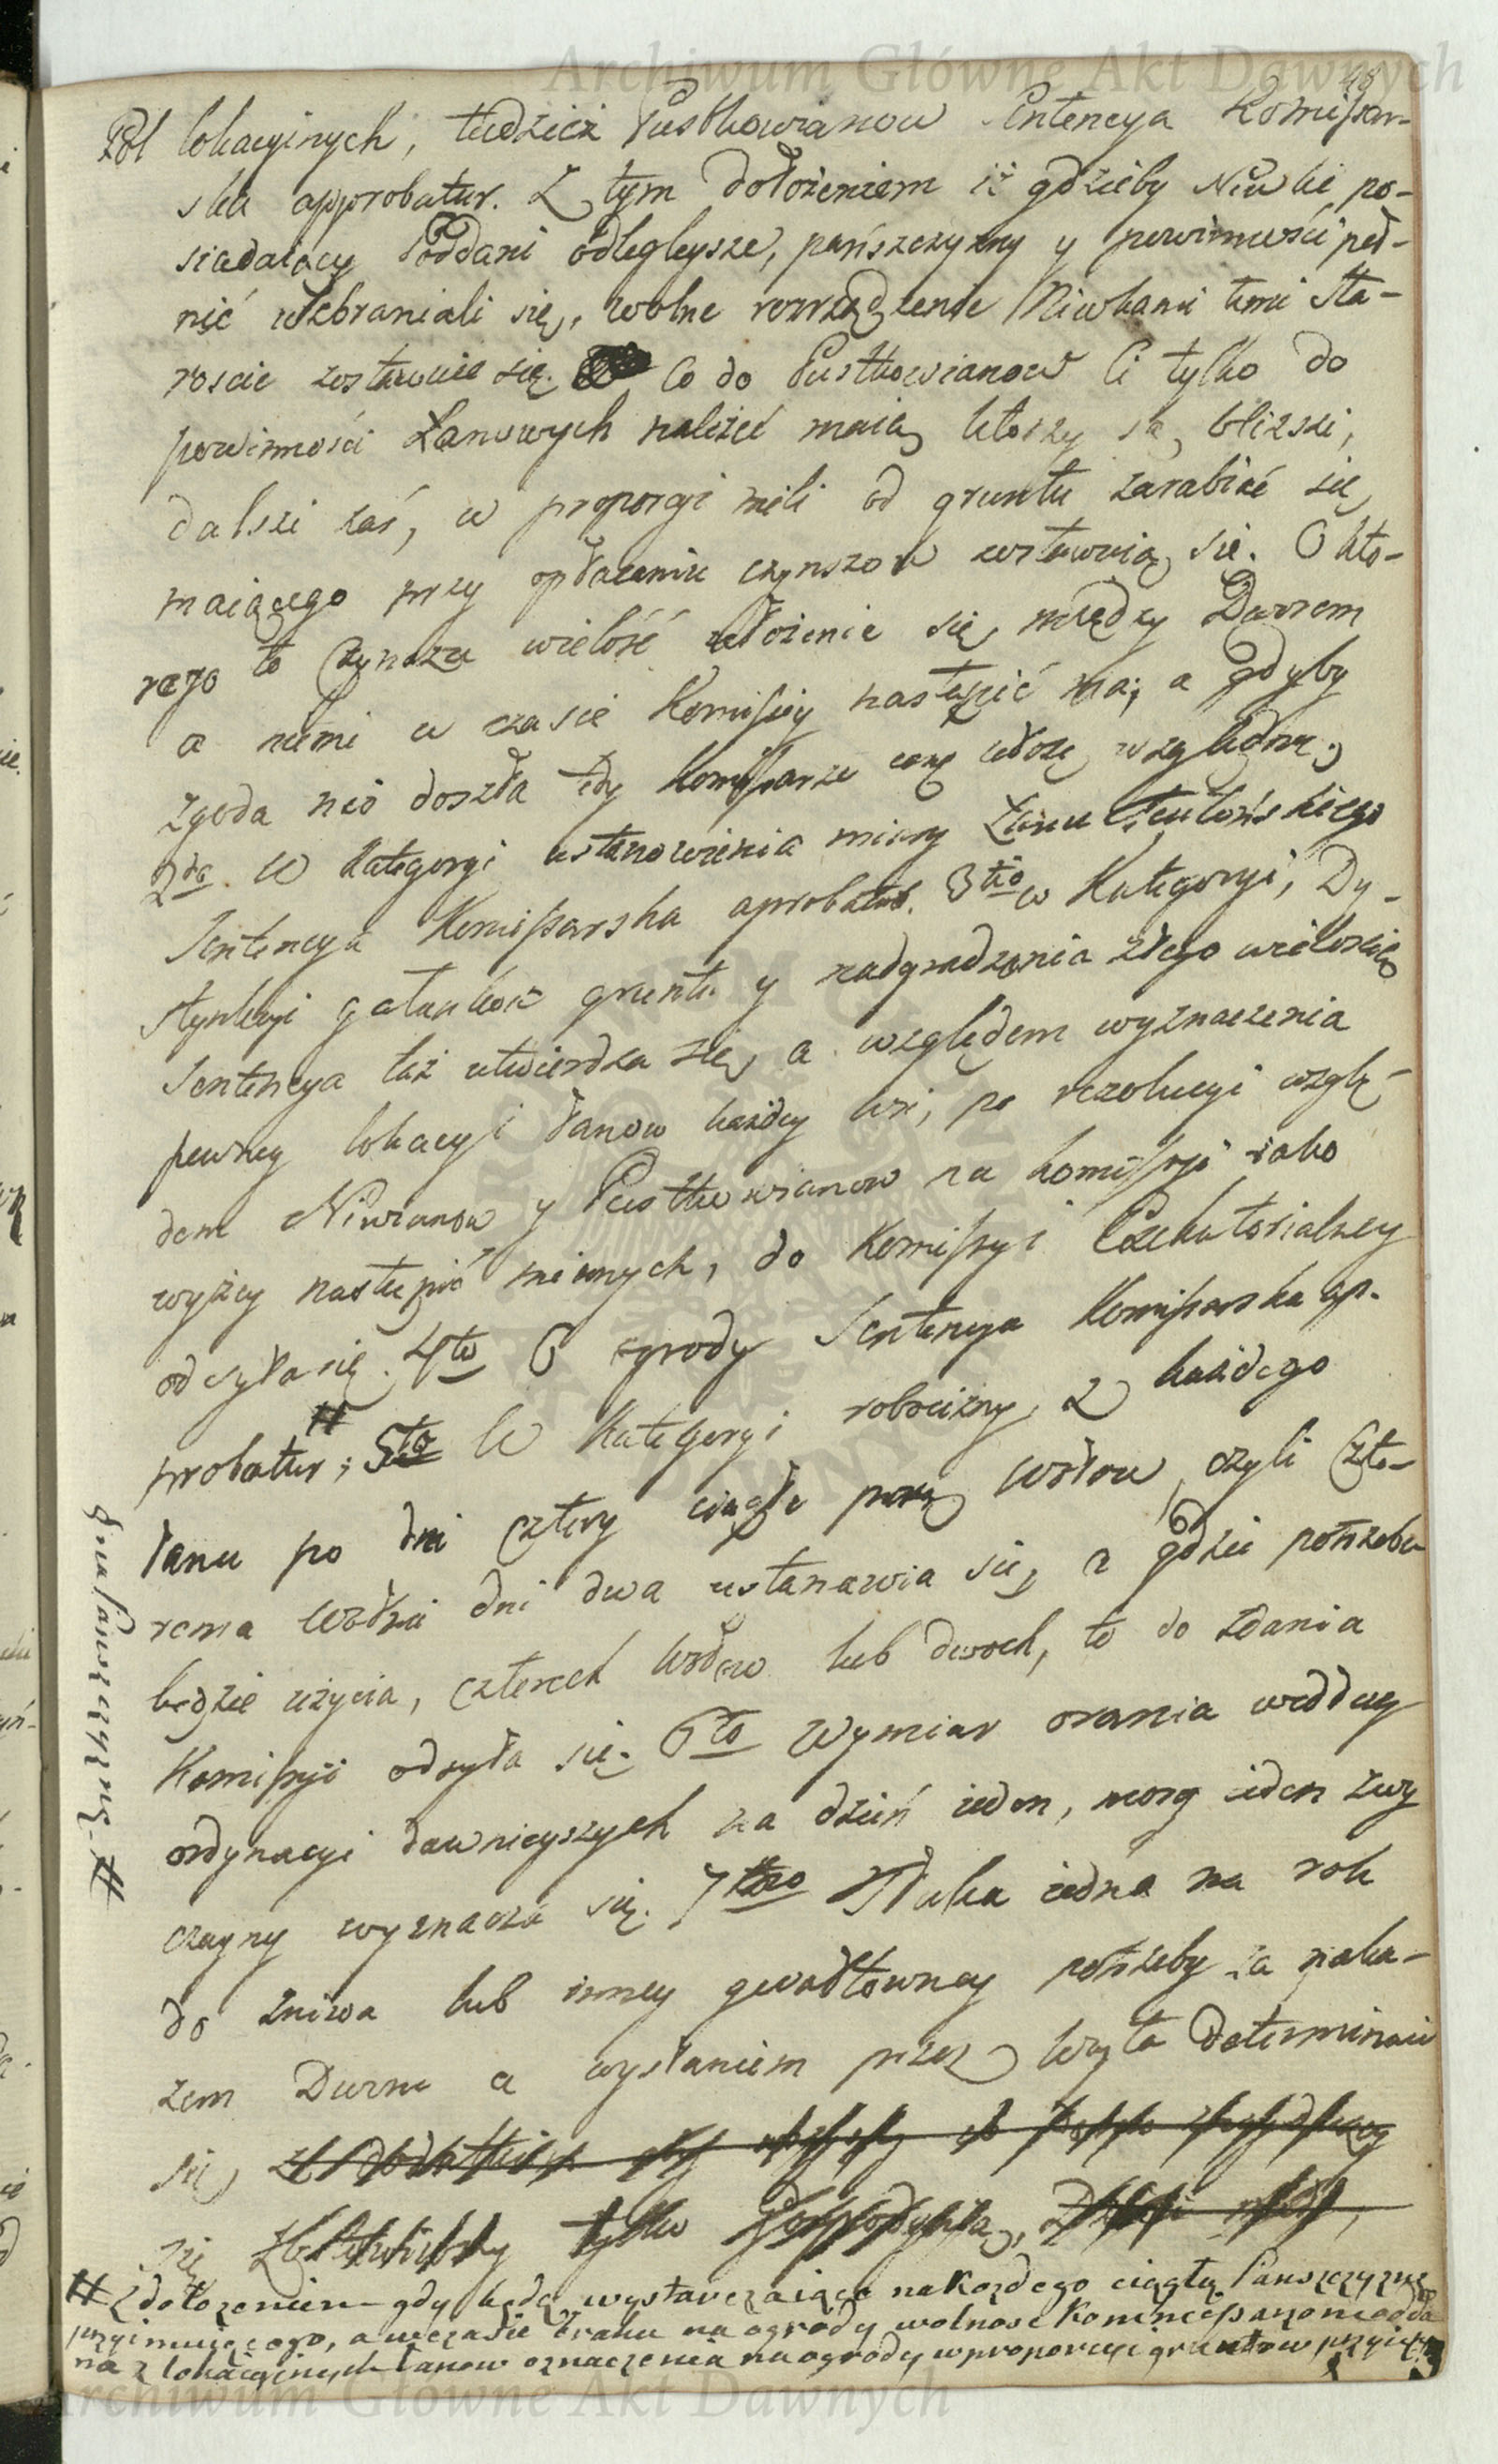 Archiwum Główne Akt Dawnych
48
Pol lokacyinych, tudziesz Pustkowianow Sentencya Komisar-
ska approbatur. Z tym dołożeniem iż gdzieby Niwki po-
siadaiący Poddani odlegleysze, pańszczyzny y powinności peł-
nić wzbraniali się, wolne rozrządzenie Niwkami temi Sta-
roscie zostawuie się. Co do Pustkowianow Ci tylko do
powinności Łanowych należeć maią ktorzy są bliższi,
dalszi zaś, w proporcyi mili od gruntu zarabiać się
maiącego przy opłacaniu czynszow zostawuią się. O kto-
rego to Czynszu wielość ułożenie się między Dworem
a niemi w czasie Komisyiy nastąpić ma; a gdyby
zgoda nie doszła tedy Komissarze onę ułożą względnie
2do. W kategoryi ustanowienia miary Łanu Teutońskiego
Sentencya Komissarska aprobatur. 3tio w Kategoryi, Dy-
stynkcyi gatunkow gruntu y nadgradzania złego wielością
Sentencya taż utwierdza się, a względem wyznaczenia
pewney lokacyi łanow każdey wsi, po rezolucyi wzglę-
dem Niwianow y Pustkowianow na komissyi iako
wyżey nastąpić mianych, do Komissyi Exekutorialney
odsyła się. 4to O ogrody Sentencya Komissarska ap-
probatur; # 5to W Kategoryi robocizny, z każdego
łanu po dni cztery ciągłe parą Wołow, czyli Czte-
rema Wołmi dni dwa ustanawia się, a gdzie potrzeba
będzie użycia, czterech Wołow lub dwoch, to do zdania
Komissyi odsyła się. 6to Wymiar orania według
ordynacyi dawnieyszych na dzień ieden, morg ieden zwy
czayny wyznacza się. 7mo Tłuka iedna na rok
do żniwa lub inney gwałtowney potrzeby za naka-
zem Dworu a wysłaniem przez Woyta determinuie
się,
się tylko
# Z dołożeniem gdy będą wystarczaiące na Kozdego ciągłą Panszczyznę
przyimuiącego, a w czasie braku na ogrody wolnosc Kommissarzom odda
na z lokacyinych łanow oznaczenia na ogrody w proporcyi gruntow
Archiwum Główne Akt Dawnych